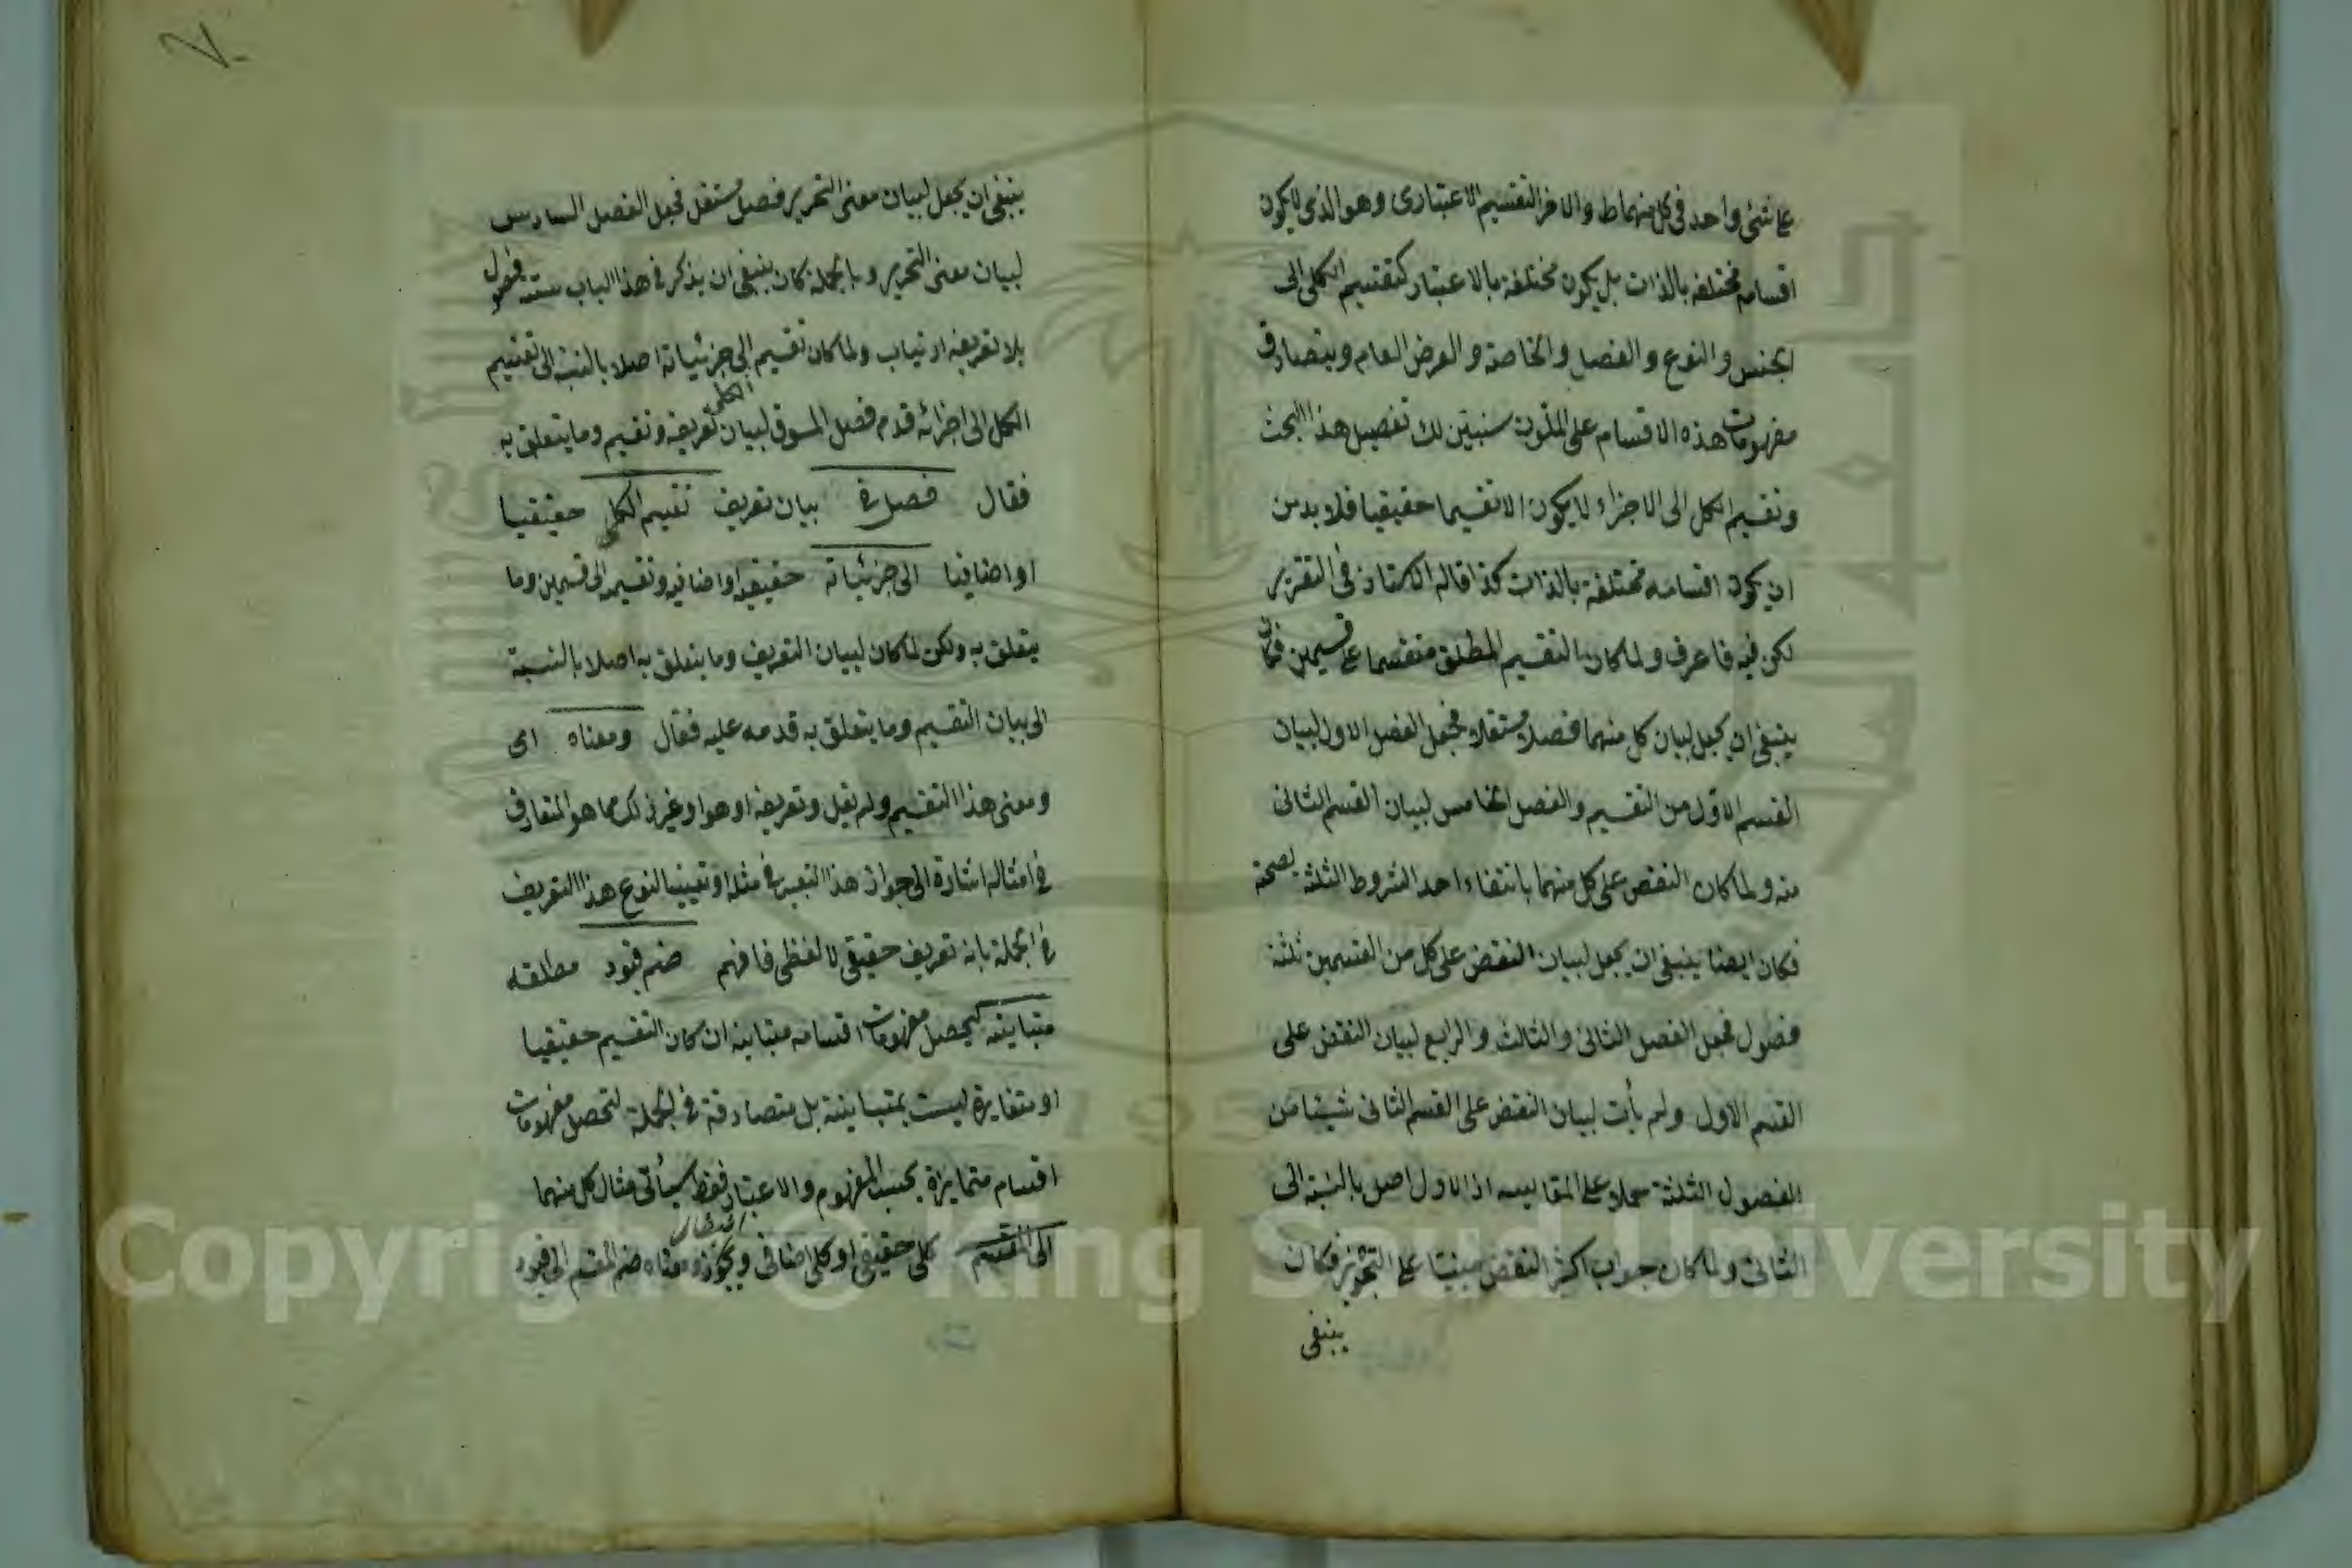 على شئ واحد في كل منهما ط والاخر التقسيم الاعتبارى وهو الذى لا يكون
اقسامه مختلفه بالذات بل يكون مختلفة بالاعتبار كتقسيم الكلى الى
الجنس والنوع والفصل والخاصة والعرض العام ويتصادق
مفهومات هذه الاقسام على الملون سنبين لك تفصيل هذا البحث
وتقسيم الكل الى الاجزاء لا يكون الا تقسيما حقيقيا فلا بد من
ان يكون اقسامه مختلفة بالذات كذا قاله الاستاذ في التقرير
لكن فيه فاعرف ولما كان التقسيم المطلق منقسما على قسيمين فكان
ينبغى ان يجعل لبيان كل منهما فصلا مستقلا فجعل الفصل الاول لبيان
القسم الاول من التقسيم والفصل الخامس لبيان القسم الثانى
منه ولما كان النقض على كل منهما بانتفاء احد الشروط الثلثة لصحته
فكان ايضا ينبغى ان يجعل لبيان النقض على كل من القسمين ثلثة
فصول فجعل الفصل الثانى والثالث والرابع لبيان النقض على
القسم الاول ولم يأت لبيان النقض على القسم الثانى شيئا من
الفصول الثلثة حملا على المقايسه اذ الاول اصل بالنسبة الى
الثانى ولما كان جواب اكثر النقض مبنيا على التحرير فكان
ينبغى
ينبغى ان يجعل لبيان معنى التحرير فصل مستقل فجعل الفصل السادس
لبيان معنى التحرير وبالجملة كان ينبغى ان يذكر في هذا الباب ستة فصول
ولما كان تقسيم الى جزئياته اصلا بالنسبة الى تقسيم
الكل الى اجزائه قدم فصل المسوق لبيان تعريفه وتقسيم وما يتعلق به
الكلى
فقال فصل في بيان تعريف تقسيم الكلى حقيقيا
او اضافيا الى جزئياته حقيقيه او اضافيه وتقسيمه الى قسمين وما
يتعلق به ولكن لما كان لبيان التعريف وما يتعلق به اصلا بالنسبة
الى بيان التقسيم وما يتعلق به قدمه عليه فقال ومعناه اى
ومعنى هذا التقسيم ولم يقل وتعريفه او هو او غير ذلك مما هو المتعارف
في امثاله اشارة الى جواز هذا التعبير في مثله او تعيينا لنوع هذا التعريف
في الجملة بانه تعريف حقيقى لا لفظى فافهم ضم قيود مطلقه
متباينه ليحصل مفهومات اقسامه متباينه ان كان التقسيم حقيقيا
او متغايرة ليست بمتباينة بل متصادقة في الجملة لتحصل مفهومات
اقسام متمايزة بحسب المفهوم والاعتبار فقط سيأتى مثال كل منهما
الى المقسم كلى حقيقى او كلى اضافى ويجوز معناه ضم المقسم الى قيود